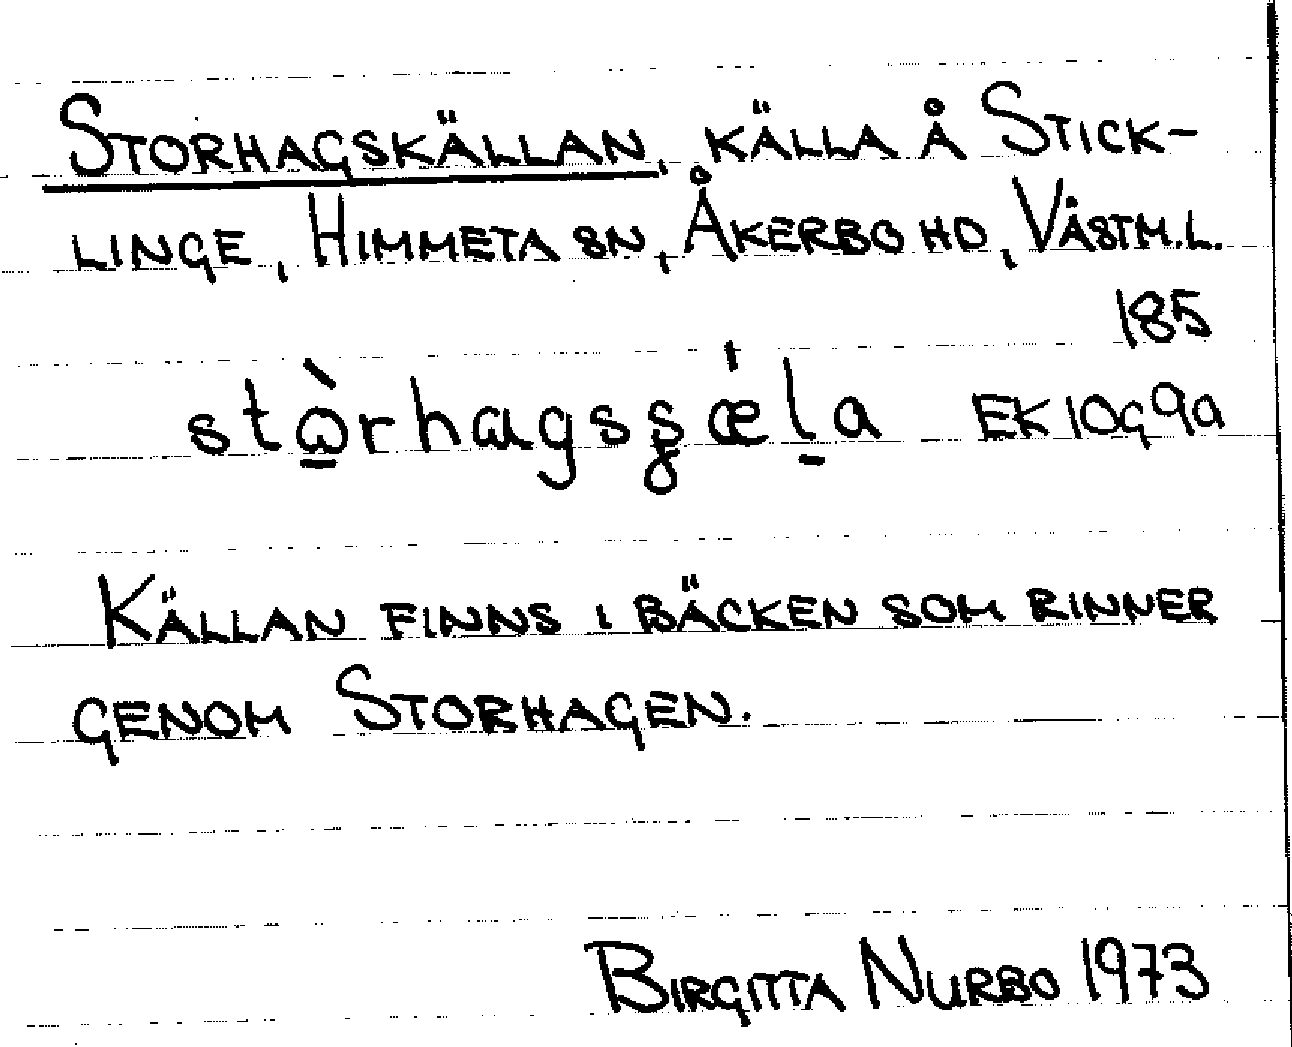 STORHAGSKÄLLAN, KÄLLA Å STICK-
LINGE, HIMMETA SN, ÅKERBO HD, VÄSTM.L.
185
EK 10G9a
KÄLLAN FINNS I BÄCKEN SOM RINNER
GENOM STORHAGEN.
BIRGITTA NURBO 1973